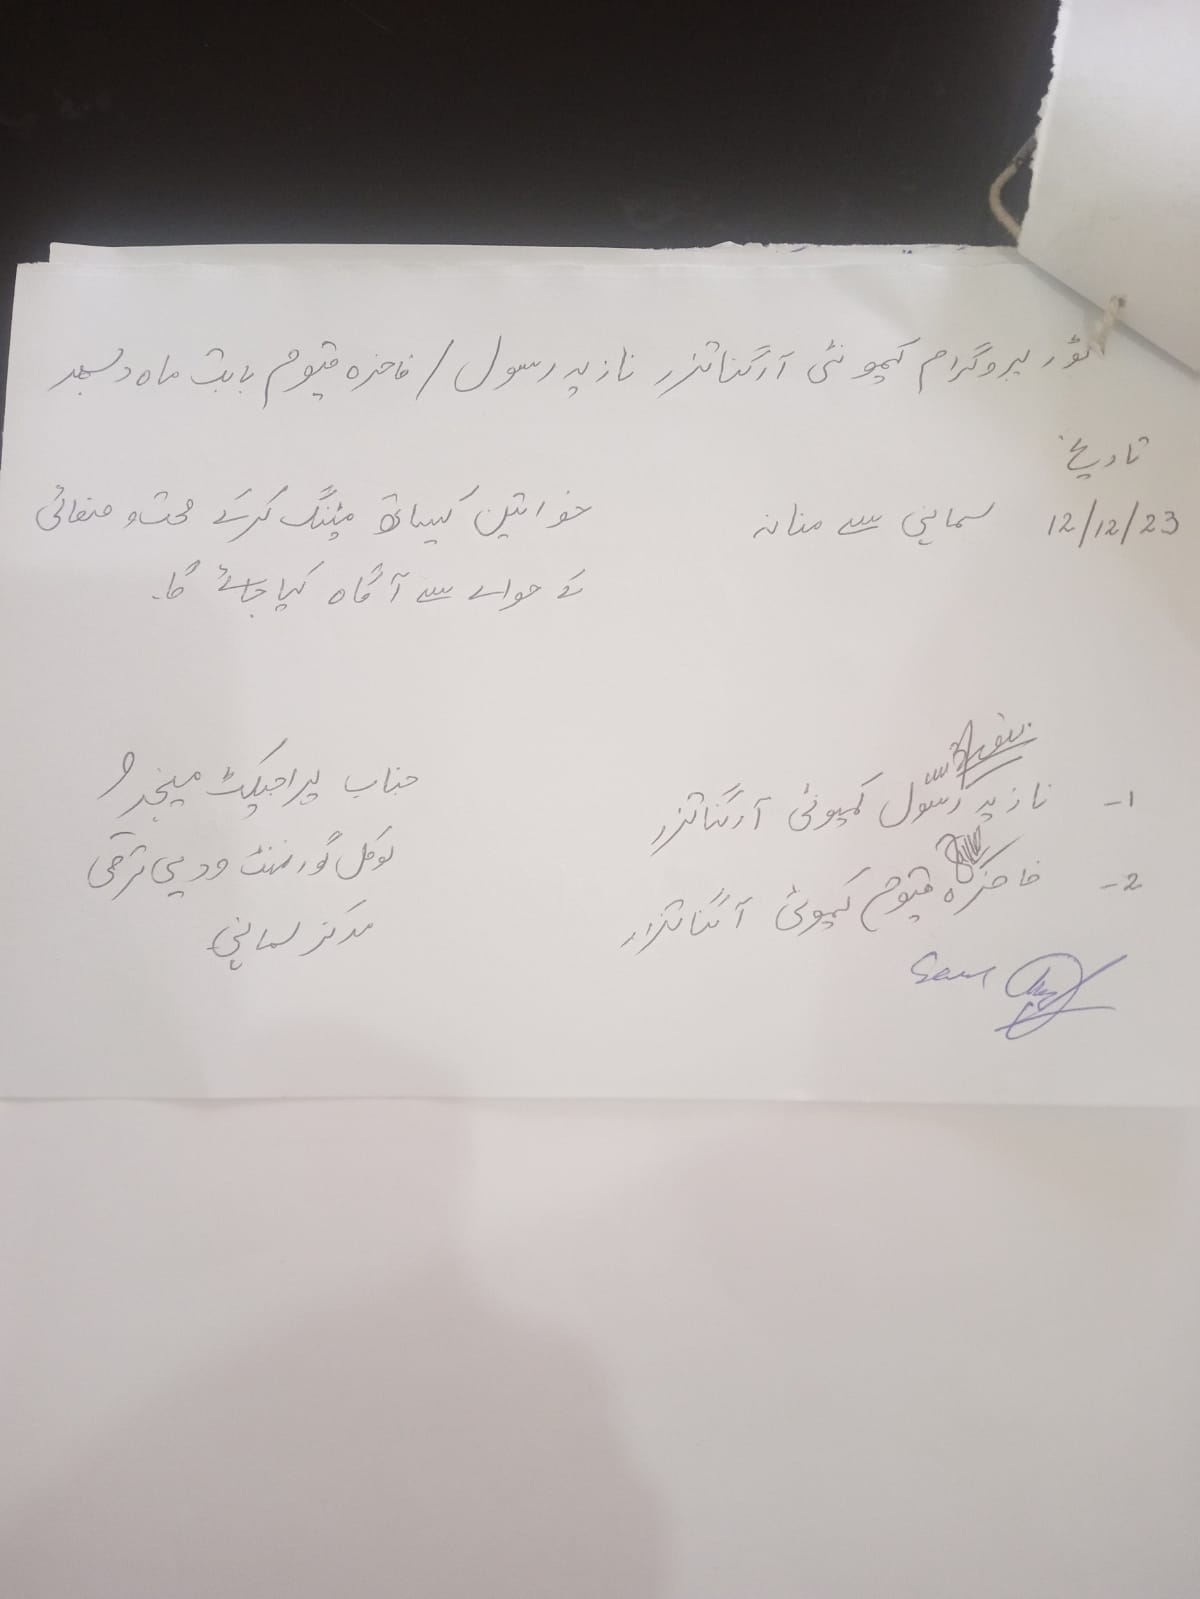 ٹور پروگرام کمیونٹی آرگنائزر نازیہ رسول / فاخرہ قیوم بابت ماہ دسمبر
تاریخ
12/12/23 سماہنی سے منانہ خواتین کیساتھ مٹینگ کرکے صحت و صفائی
کے حوالے سے آگاہ کیا جائے گا۔
1- نازیہ رسول کمیونٹی آرگنائزر
2- فاخرہ قیوم کمیونٹی آرگنائزر
جناب پراجیکٹ مینجر
لوکل گورنمنٹ و دیہی ترقی
مرکز سماہنی